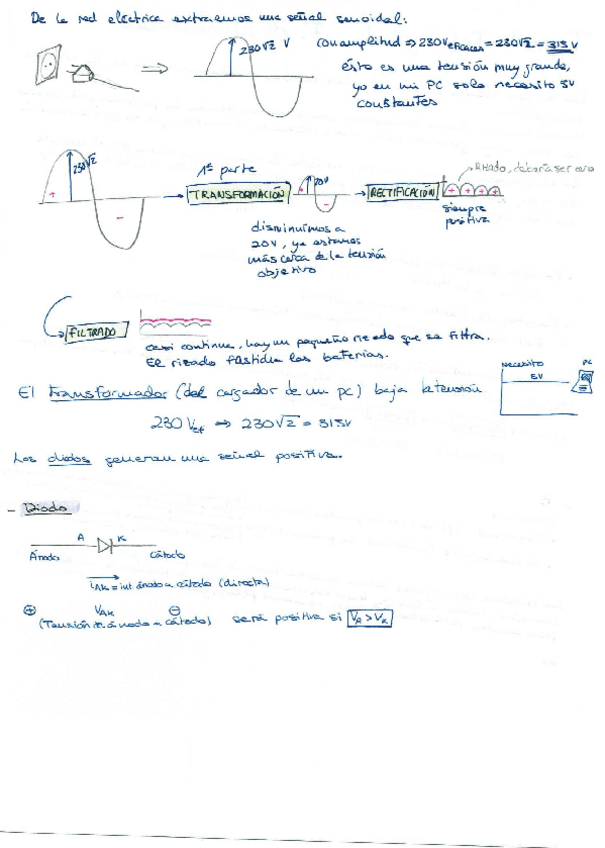 De la red eléctrica extraemos una señal senoidal:
230√2 V
con amplitud ⇒ 230V eficaces = 230√2 = 313V
ésto es una tensión muy grande,
yo en mi PC solo necesito 5V
constantes
230√2
+
-
1ª parte
TRANSFORMACIÓN
20V
+
-
RECTIFICACIÓN
Rizado, debería ser
+ + + +
siempre
positiva
disminuímos a
20V, ya estamos
más cerca de la tensión
objetivo
FILTRADO
casi continua, hay un pequeño rizado que se filtra.
El rizado fastidia las baterías.
necesito
5V
PC
El transformador (del cargador de un pc) baja la tensión
230 Vef ⇒ 230√2 = 313V
Los diodos generan una señal positiva.
- Diodo
A K
Ánodo cátodo
iAK = int ánodo a cátodo (directa)
+ VAK -
(Tensión de ánodo a cátodo) será positiva si VA > VK